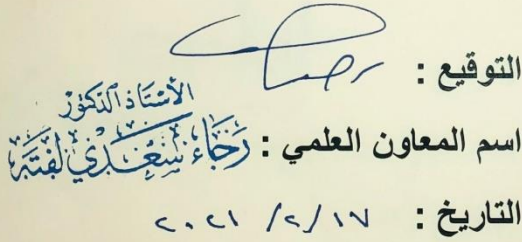 التوقيع :
الأستاذ الدكتور
اسم المعاون العلمي : رجاء سعدي لفتة
التاريخ : ١٧ /٢/ ٢٠٢١